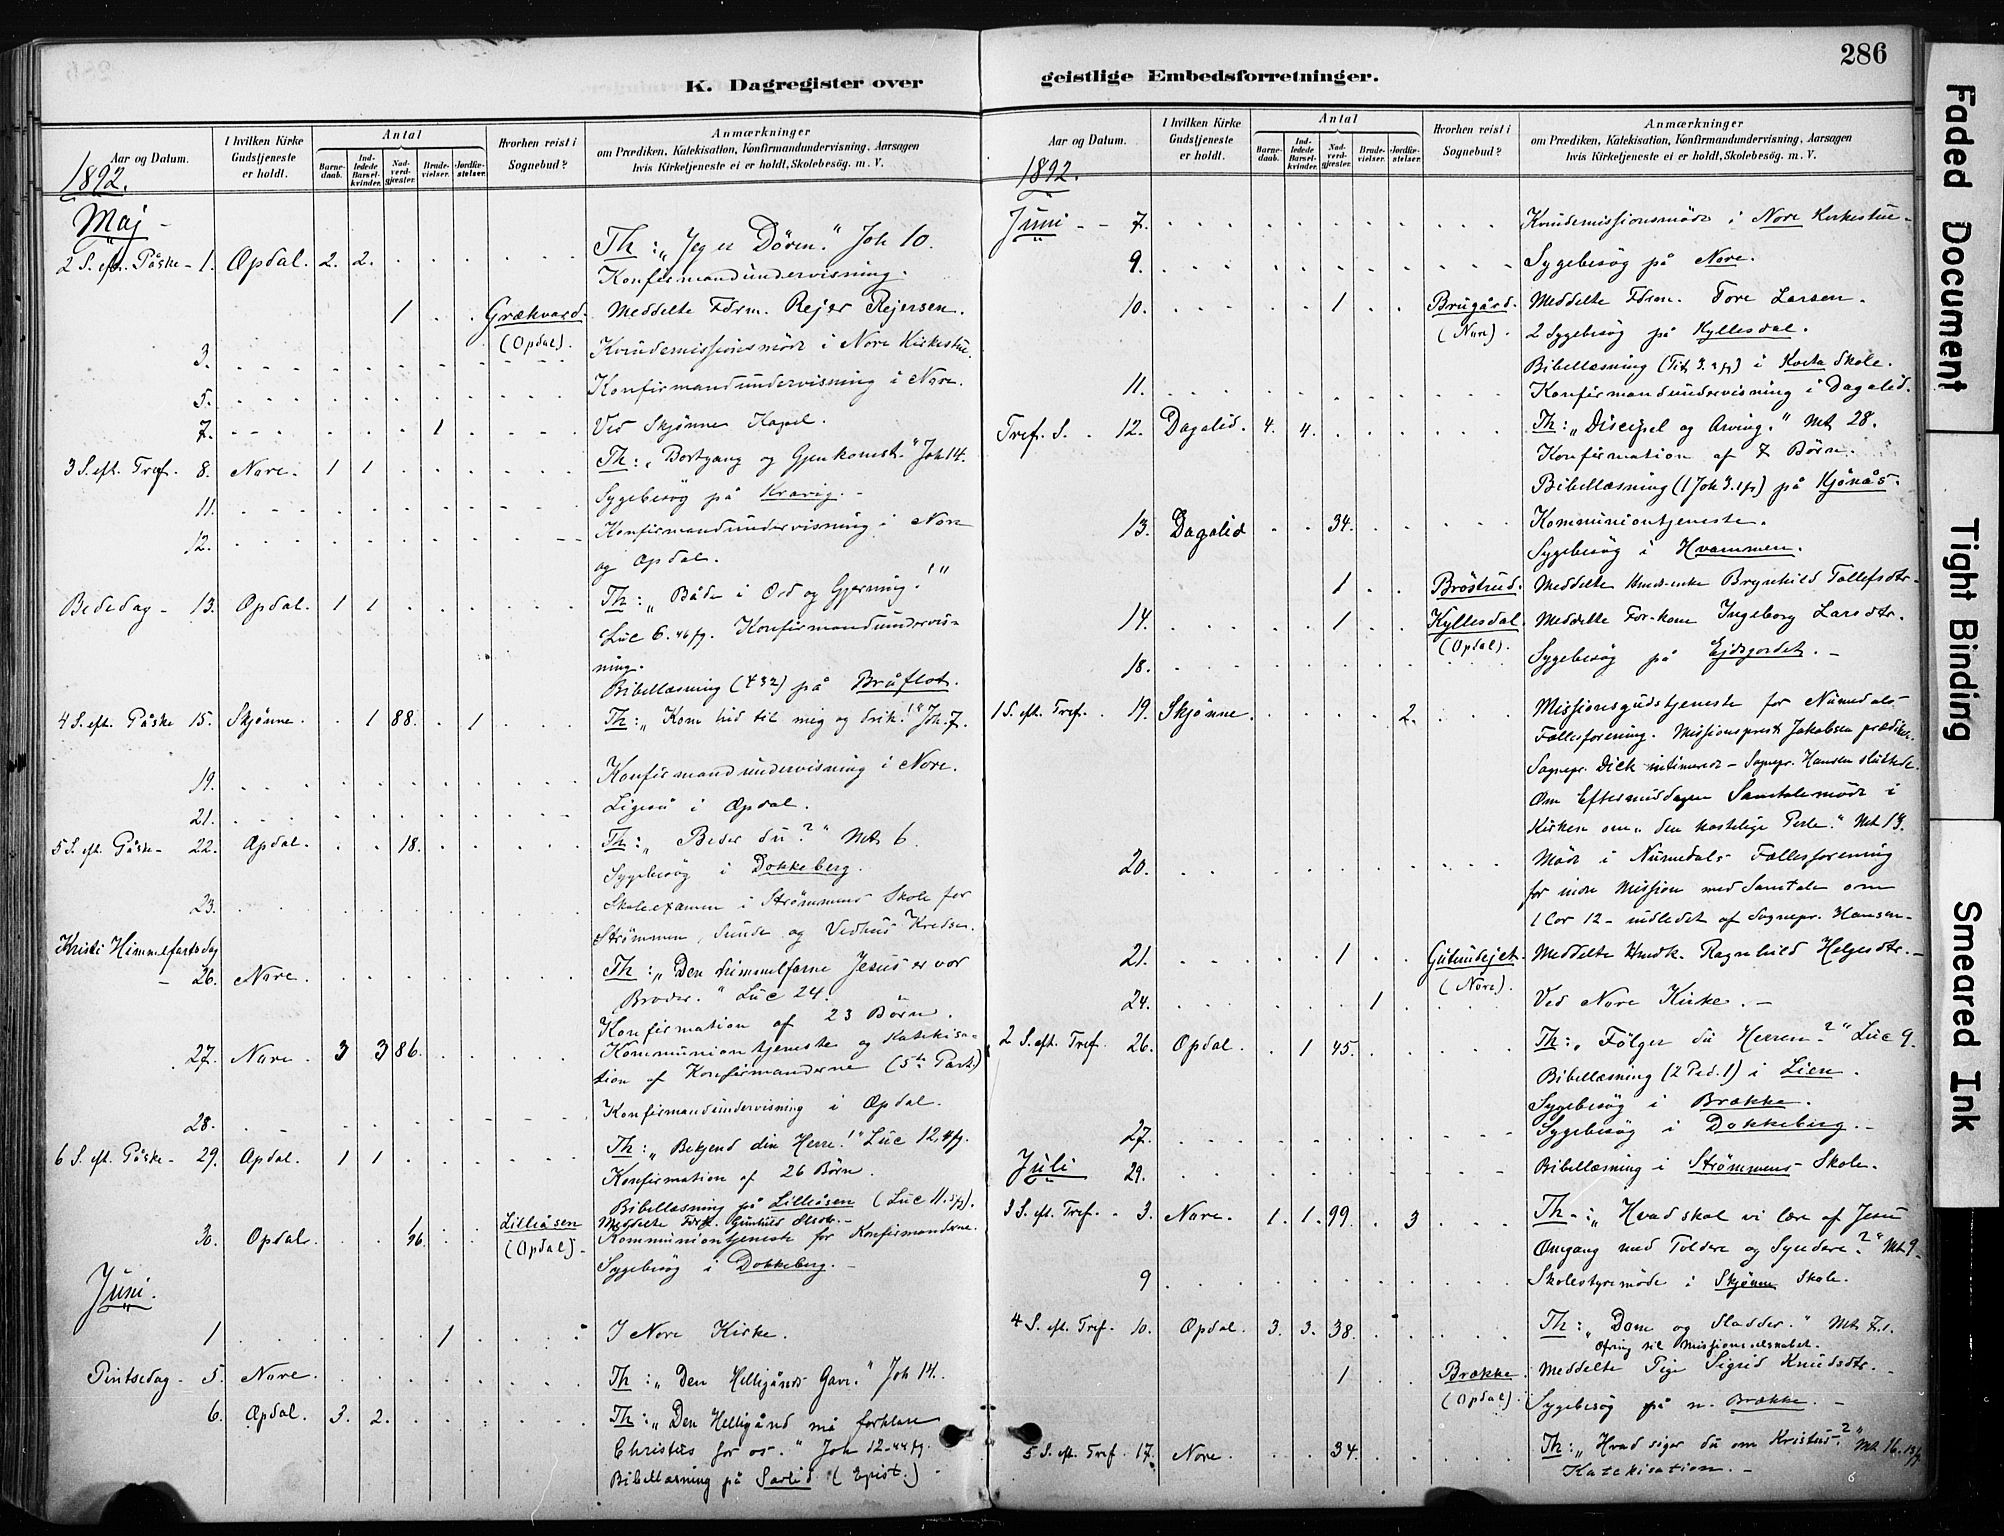 286
K. Dagregister over
Aar og Datum.
I hvilken Kirke Gudstjeneste er holdt.
Antal
Barnedaab.
Indledede Barselkvinder.
Nadverdgjæster.
Brudevielser.
Jordfæstelser.
Hvorhen reist i Sognebud?
Anmærkninger
om Prædiken, Katekisation, Konfirmandundervisning, Aarsagen
hvis Kirketjeneste ei er holdt, Skolebesøg. m. V.
1892.
Maj
2 S. eft. Påske - 1. Opdal. 2. 2. Th: „Jeg er Døren." Joh 10.
Konfirmandundervisning.
1 Grækvard. Meddelte Fdrm. Rejer Rejersen.
(Opdal).
3. Kvindemissionsmöde i Nore Kirkestue.
5. Konfirmandundervisning i Nore.
7. 1 Ved Skjønne Kapel.
3 S. eft. Tref. 8. Nore. 1 1 Th: „Bortgang og Gjenkomst." Joh 14.
11. Sygebesög på Kravig.
12. Konfirmandundervisning i Nore
og Opdal.
Bededag - 13. Opdal. 1 1 Th: „Både i Ord og Gjerning!"
Luc 6.46fg. Konfirmandundervis-
ning.
Bibellæsning (432) på Bråflot.
4 S. eft. Påske 15. Skjønne. 1 88. 1 Th: „Kom hid til mig og drik!" Joh. 7.
19. Konfirmandundervisning i Nore.
21. Ligeså i Opdal.
5 S. eft. Påske - 22. Opdal. 18. Th: „Beder du?" Mt 6.
Sygebesög i Dokkeberg.
23. Skoleexamen i Strömmens Skole for
Strömmen, Sunde og Vedhus Kredse.
Kristi Himmelfartsdag
- 26. Nore. Th: „Den himmelfarne Jesus er vor
Broder." Luc 24.
Konfirmation af 23 Börn.
27. Nore. 3 3 86. Kommuniontjeneste og Katekisa-
tion af Konfirmanderne (5te Part.)
28. Konfirmandundervisning i Opdal.
6 S. eft. Påske - 29. Opdal. 1 1 Th: „Bekjend din Herre!" Luc 12.4fg.
Konfirmation af 26 Börn.
Bibellæsning på Lilleåsen (Luc 11.5fg).
Lilleåsen Meddelte Gunhild
30. Opdal. 36. (Opdal) Kommuniontjeneste for Konfirmanderne.
Sygebesög i Dokkeberg.
Juni.
1 1 I Nore Kirke.
Pintsedag - 5. Nore. Th: „Den Helligånds Gave." Joh 14.
6. Opdal. 3. 2. Th: „Den Helligånd må forklare
Christus for os." Joh 12.44fg.
Bibellæsning på Sørlid (Epist.)
geistlige Embedsforretninger.
Aar og Datum.
I hvilken Kirke Gudstjeneste er holdt.
Antal
Barnedaab.
Indledede Barselkvinder.
Nadverdgjæster.
Brudevielser.
Jordfæstelser.
Hvorhen reist i Sognebud?
Anmærkninger
om Prædiken, Katekisation, Konfirmandundervisning, Aarsagen
hvis Kirketjeneste ei er holdt, Skolebesøg. m. V.
1892.
Juni - - 7. Kvindemissionsmöde i Nore Kirkestue.
9. Sygebesög på Nore.
10. 1 Brugård. Meddelte Fdrm. Tore Larsen.
(Nore) 2 Sygebesög på Kyllesdal.
Bibellæsning (Tit 3.4fg) i Kveta Skole.
11. Konfirmandundervisning i Dagalid.
Tref. S. 12. Dagalid. 4. 4. Th: „Discipel og Arving." Mt 28.
Konfirmation af 7 Börn.
Bibellæsning (1 Joh 3.1fg) på Kjönås.
13. Dagalid 34. Kommuniontjeneste.
Sygebesög i Hvammen.
1 Bröstrud. Meddelte Hmdsenke Brynhild Tollefsdtr.
14. 1 Kyllesdal. Meddelte For-kone Ingeborg Larsdtr.
(Opdal).
18. Sygebesög på Ejdsgardet.
1 S. eft. Tref. 19. Skjønne. 2. Missionsgudstjeneste for Numedals
Fællesforening. Missionsprest Jakobsen prædiken.
Sognepr. Dick intimerede - Sognepr. Hansen sluttede.
Om Eftermiddagen Samtalemöde i
Kirken om „den kostelige Perle." Mt 13.
20. Möde i Numedals Fællesforening
for indre Mission med Samtale om
1 Cor 12 - indledet af Sognepr. Hansen.
21. 1 Gutundejet. Meddelte Hmdk. Ragnhild Helgesdtr.
(Nore).
24. 1 Ved Nore Kirke.
2 S. eft. Tref. 26. Opdal. 1 45. Th: „Fölger du Herren?" Luc 9.
Bibellæsning (2 Ped. 1) i Lien.
Sygebesög i Brække.
27. Sygebesög i Dokkeberg.
Juli 29. Bibellæsning i Strömmens Skole.
3 S. eft. Tref. - 3. Nore. 1. 1. 99. 3 Th: „Hvad skal vi lære af Jesu
Omgang med Toldere og Syndere?" Mt 9.
9 Skolestyremöde i Skjønne Skole.
4 S. eft. Tref. 10. Opdal. 3. 3. 38. Th: „Dom og Sladder." Mt 7.1.
Ofring til Missionsselskabet.
1 Brække Meddelte Pige Sigrid Knudsdtr.
(Opdal). Sygebesög på n. Brække.
5 S. eft. Tref. 17. Nore. 34. Th: „Hvad siger du om Kristus?" Mt 16.13fg.
Katekisation.
Faded Document
Tight Binding
Smeared Ink